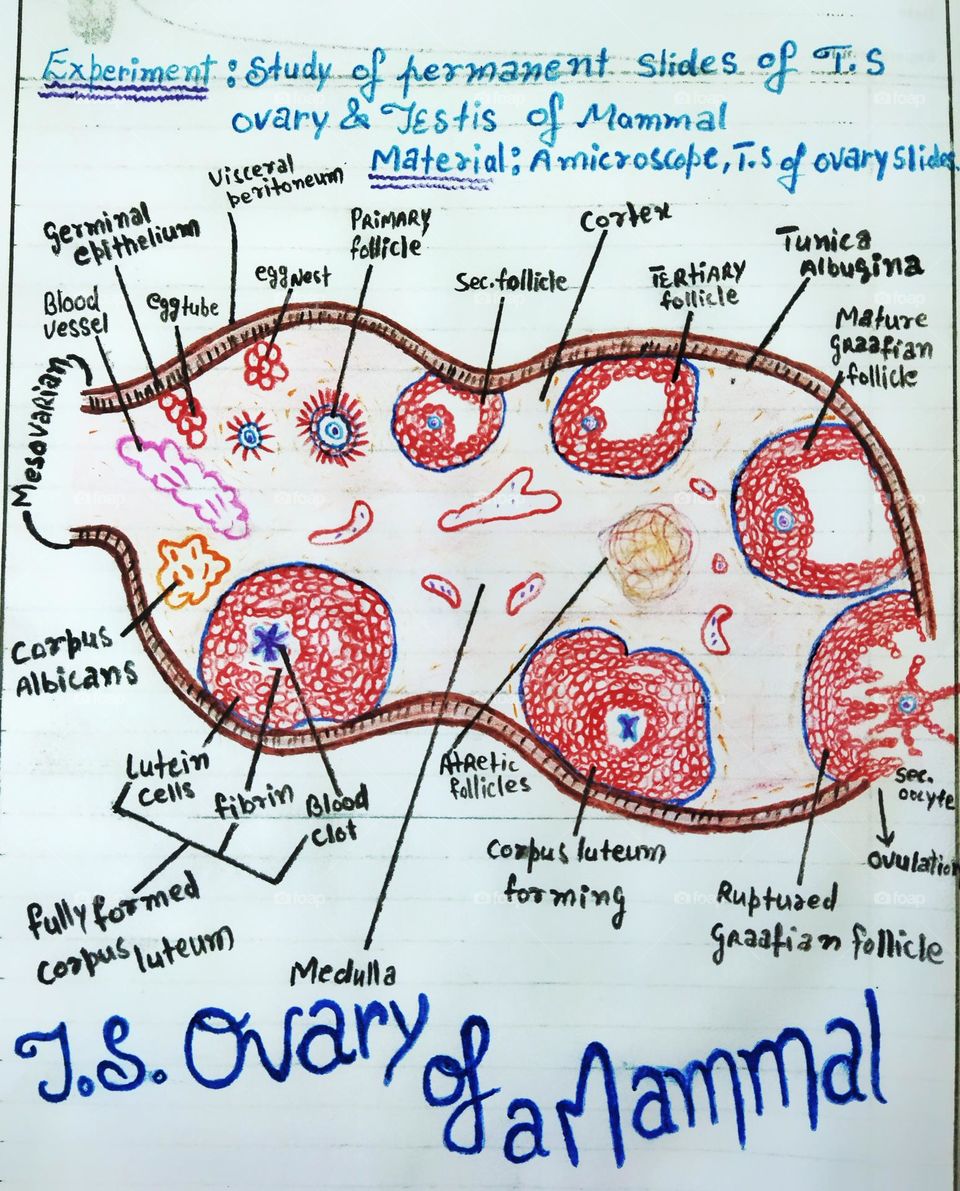 Experiment: Study of permanent slides of T.S
ovary & Testis of Mammal
Material: A microscope, T.S of ovary slides
Visceral
peritoneum
Germinal
epithelium
PRIMARY
follicle
Cortex
Tunica
Albugina
Blood
vessel
eggtube
egg Nest
Sec. follicle
TERTIARY
follicle
Mature
graafian
follicle
Mesovarian
Corpus
Albicans
Lutein
cells
fibrin
Blood
clot
Atretic
follicles
sec.
oocyte
Ovulation
Corpus luteum
forming
Ruptured
graafian follicle
fully formed
corpus luteum
Medulla
T.S. Ovary of a Mammal
foap